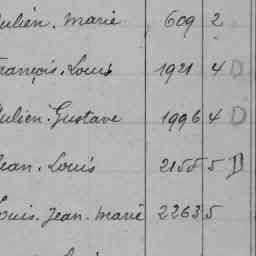 Julien. Marie 609 2
François. Louis 1921 4 D
Julien. Gustave 1996 4 D
Jean. Louis 2155 5 D
Louis. Jean. Marie 2263 5